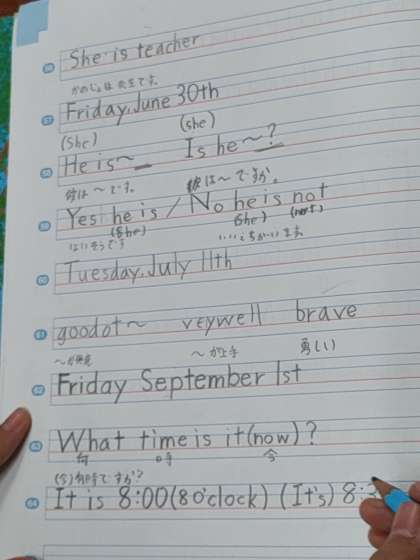 56 She is teacher
かのじょは先生です。
57 Friday, June 30th
(she) (she)
58 He is〜 Is he〜?
彼は〜です。 彼は〜ですか。
59 Yes he is / No he is not
(she) (she) (not)
はいそうです いいえちがいます。
60 Tuesday, July 11th
61 goodot〜 veywell brave
〜が得意 〜が上手 勇しい
62 Friday September 1st
63 What time is it (now)?
何 時 今
(今)何時ですか?
64 It is 8:00 (8 o'clock) (It's) 8:3